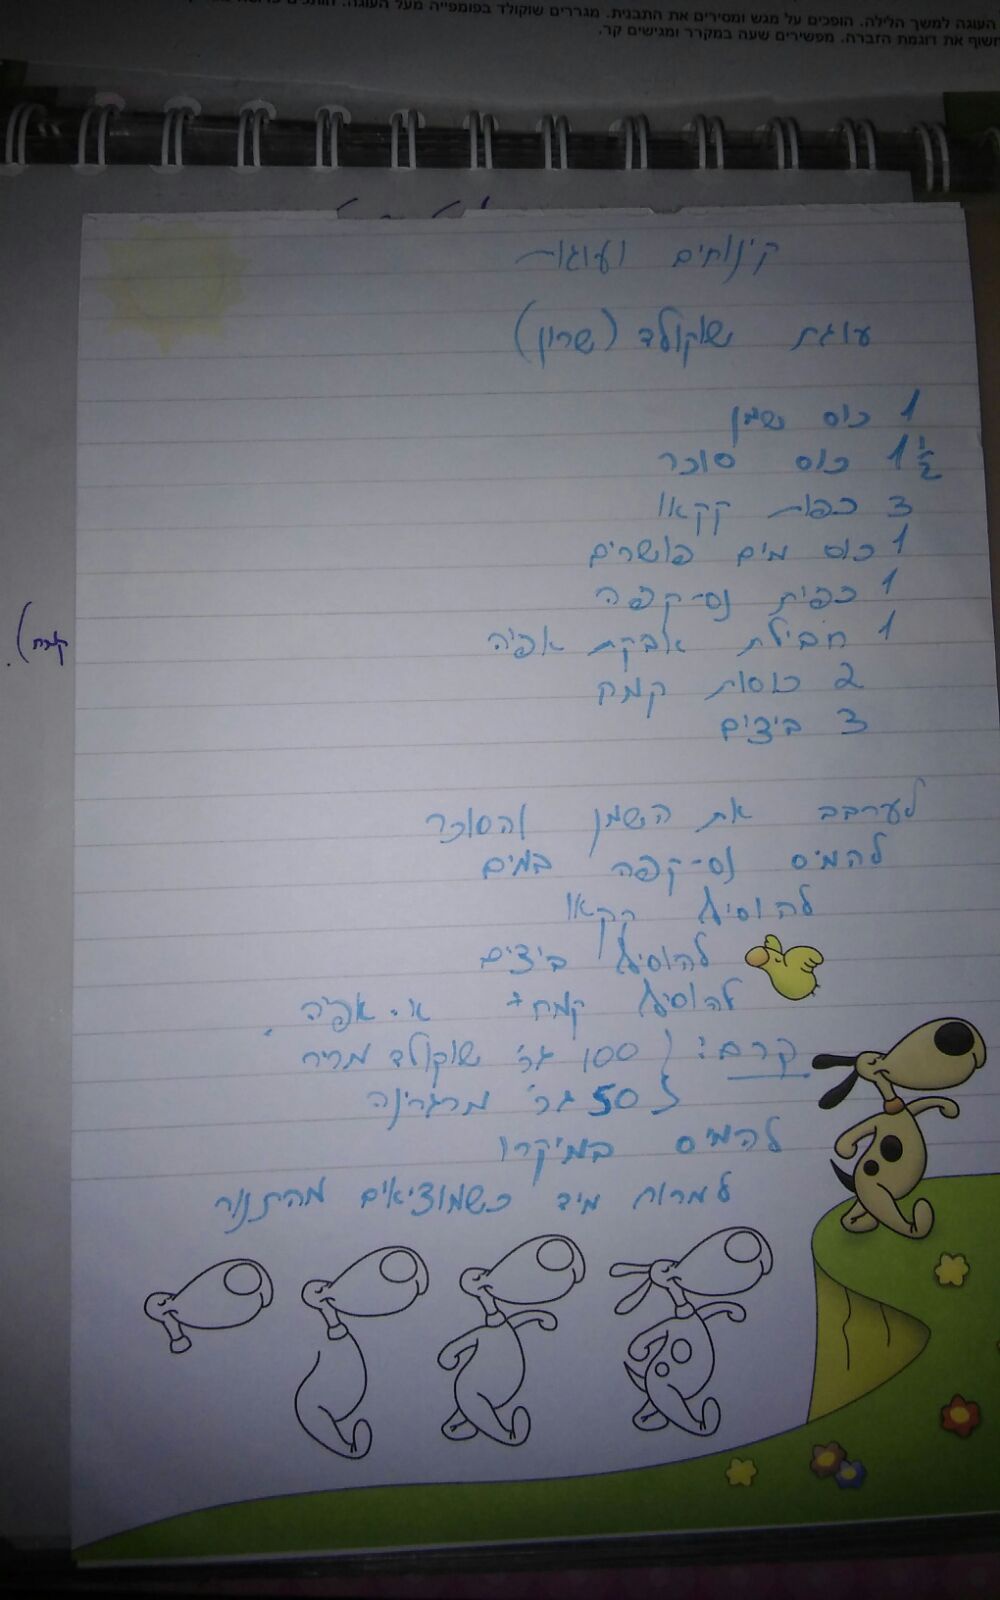 העוגה למשך הלילה. הופכים על מגש ומסירים את התבנית. מגררים שוקולד בפומפייה מעל העוגה.
חשוף את דוגמת הזברה. מפשירים שעה במקרר ומגישים קר.
קינוחים ועוגות
עוגת שוקולד (שרון)
1 כוס שמן
1 1/2 כוס סוכר
3 כפות קקאו
1 כוס מים פושרים
1 כפית נס-קפה
1 חבילת אבקת אפיה
2 כוסות קמח
3 ביצים
קמח).
לערבב את השמן והסוכר
להמיס נס-קפה במים
להוסיף קקאו
להוסיף ביצים
להוסיף קמח + א. אפיה.
קרם: { 100 גר' שוקולד מריר
{ 50 גר' מרגרינה
להמיס במיקרו
למרוח מיד כשמוציאים מהתנור